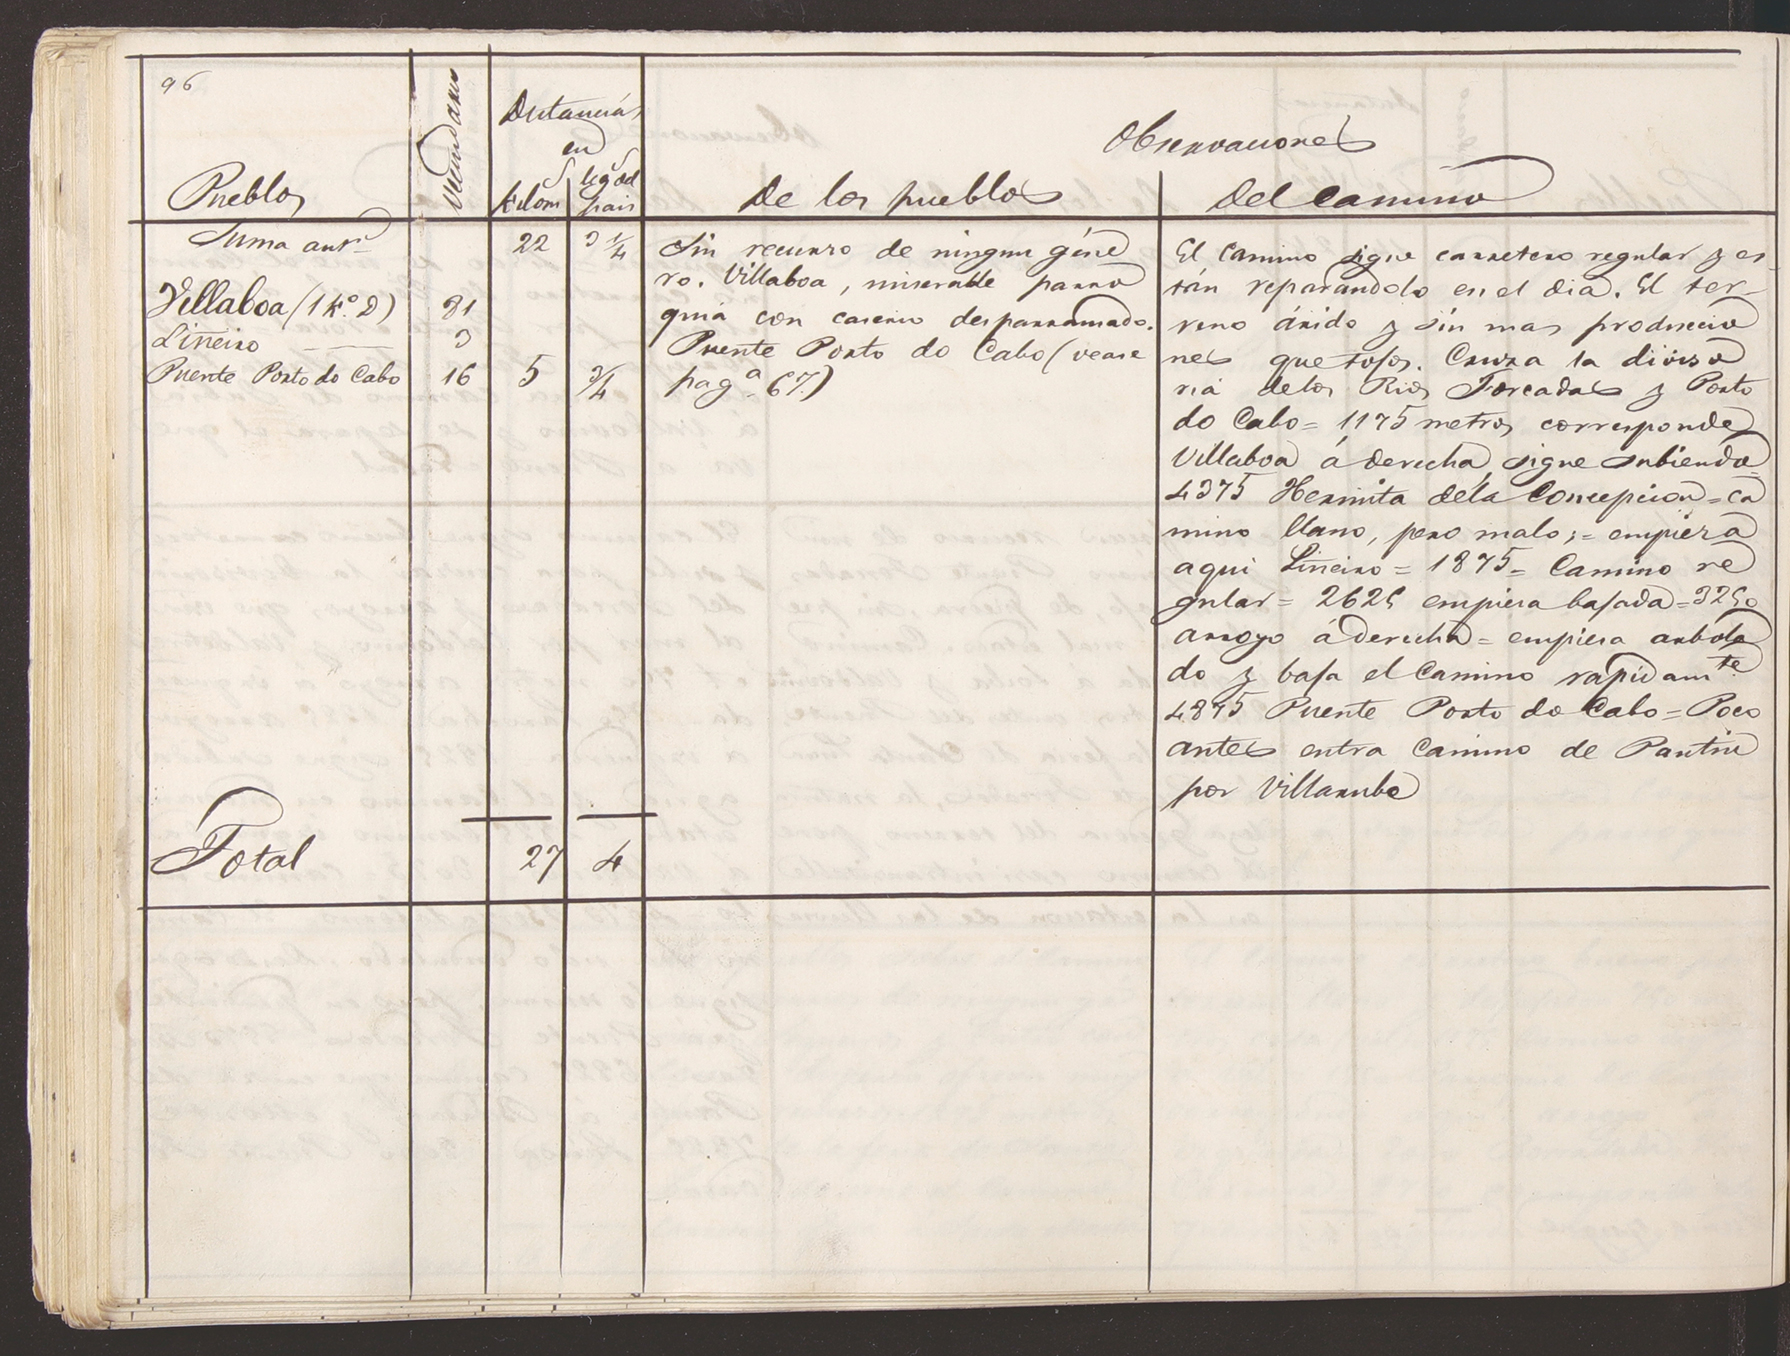 96
Pueblos
Vecindario
Distancias
en
kilom
leg.s del
pais
Observaciones
De los pueblos
Del camino
Suma ant.r 22 3 1/4
Villaboa (1 k.o D) 81
Liñeiro 3
Puente Porto do Cabo 16 5 3/4
Total 27 4
Sin recurso de ningun géne
ro. Villaboa, miserable parro
quia con caserio desparramado.
Puente Porto do Cabo (vease
pag.a 67.)
El camino sigue carretero regular y es-
tán reparandolo en el dia. El ter-
reno árido y sin mas produccio
nes que tojos. Cruza la diviso
ria de los Rios Forcadas y Porto
do Cabo = 1175 metros corresponde
Villaboa á derecha, sigue subiendo=
4375 Hermita de la Concepcion = ca
mino llano, pero malo; = empieza
aqui Liñeiro = 1875 = Camino re
gular = 2625 empieza bajada = 3250
arroyo á derecha = empieza arbola
do y baja el camino rapidam.te
4875 Puente Porto do Cabo = Poco
antes entra Camino de Pantin
por Villarube